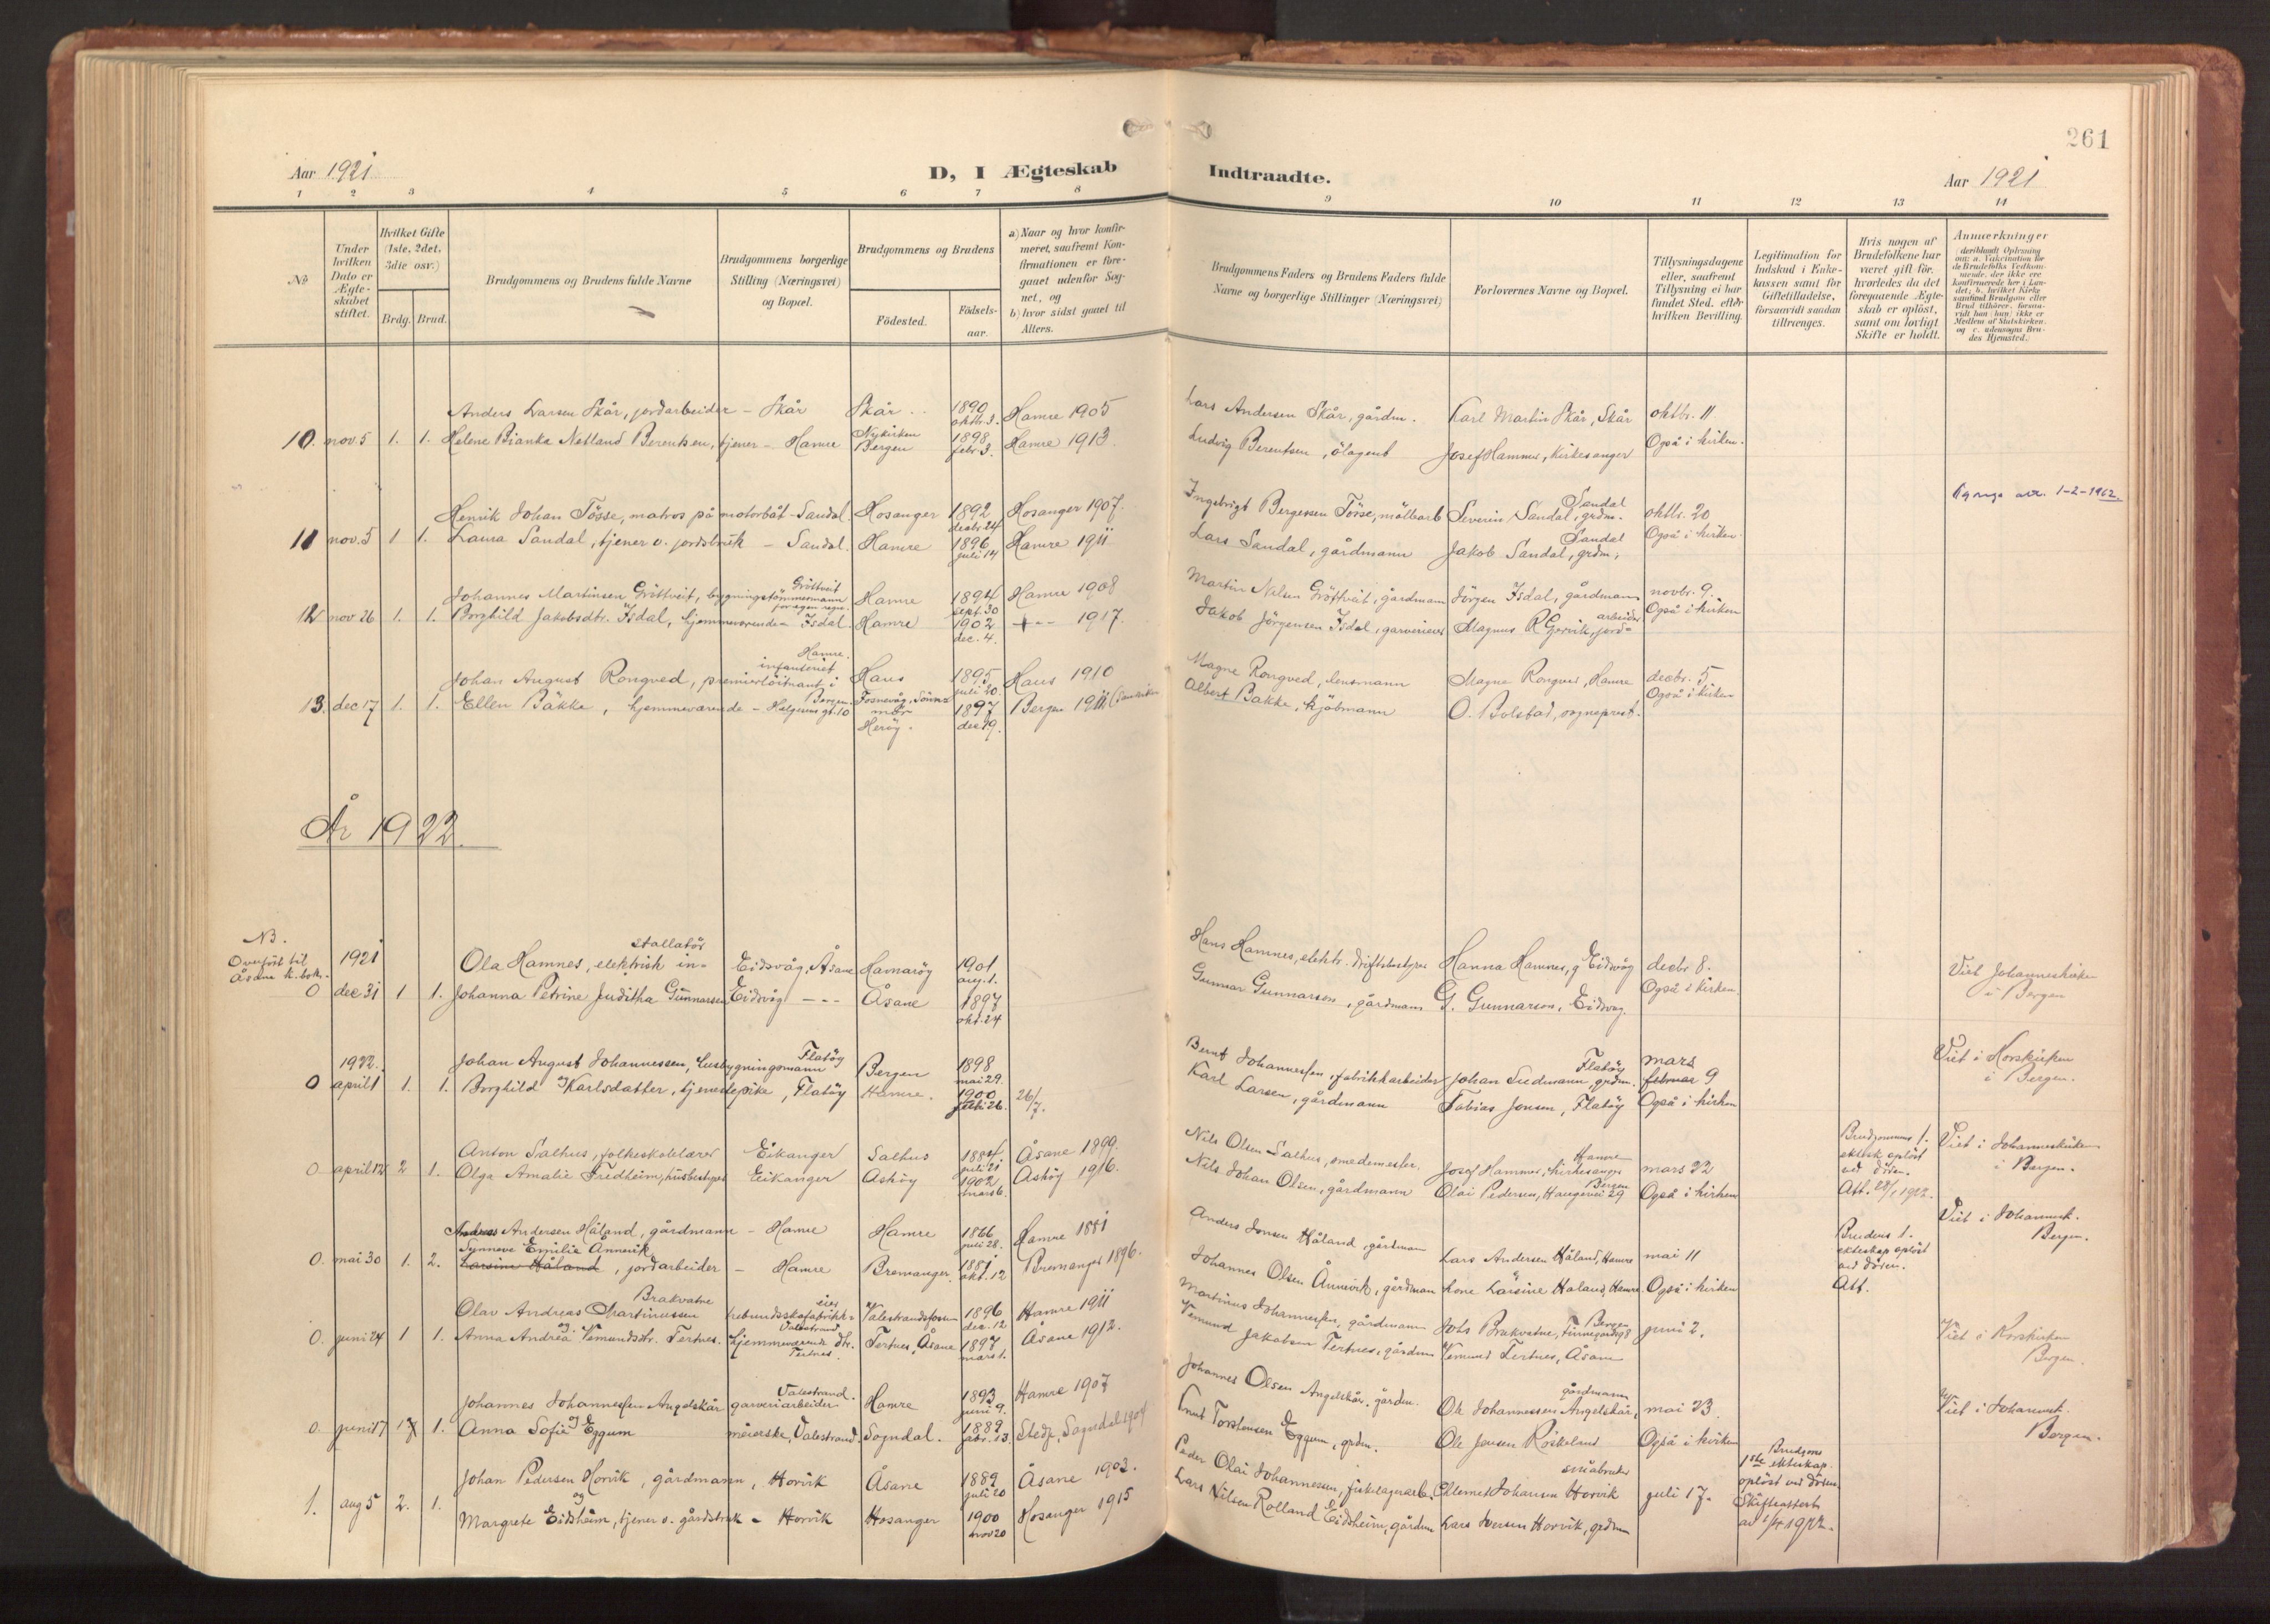 261
Aar 1921
D, I Ægteskab Indtraadte.
Aar 1921
1 2 3 4 5 6 7 8 9 10 11 12 13 14
No
Under hvilken Dato er Ægteskabet stiftet.
Hvilket Gifte (1ste, 2det, 3die osv.)
Brdg. Brud.
Brudgommens og Brudens fulde Navne
Brudgommens borgerlige Stilling (Næringsvei) og Bopæl.
Brudgommens og Brudens
Födested.
Födselsaar.
a) Naar og hvor konfirmeret, saafremt Konfirmationen er foregaaet udenfor Sognet, og
b) hvor sidst gaaet til Alters.
Brudgommens Faders og Brudens Faders fulde Navne og borgerlige Stillinger (Næringsvei)
Forlovernes Navne og Bopæl.
Tillysningsdagene eller, saafremt Tillysning ei har fundet Sted, efter hvilken Bevilling.
Legitimation for Indskud i Enkekassen samt for Giftetilladelse, forsaavidt saadan tiltrænges.
Hvis nogen af Brudefolkene har været gift för, hvorledes da det foregaaende Ægteskab er oplöst, samt om lovligt Skifte er holdt.
Anmærkninger
Anders Larsen Skår, jordarbeider - Skår Skår 1890 oktbr. 3. Hamre 1905 Lars Andersen Skår, gårdm. Karl Martin Skår, Skår oktbr. 11
10. nov. 5 1. 1. Helene Bianka Netland Berentsen, tjener - Hamre Nykirken Bergen 1898 febr. 3. Hamre 1913. Ludvig Berentsen, ölagent Josef Hammer, kirkesanger Også i kirken.
1-2-1962.
Henrik Johan Tösse, matros på motorbåt - Sandal. Hosanger 1892 decbr. 24 Hosanger 1907. Ingebrigt Bergesen Tösse, Severin Sandal, grdm. Sandal oktbr. 20
11 nov. 5 1 1. Laura Sandal, tjener v. jordbruk - Sandal. Hamre 1896 juli 14 Hamre 1911 Lars Sandal, gårdmann Jakob Sandal, grdm. Sandal Også i kirken.
Johannes Martinsen Gröttveit, bygningstömmermann for egen regn. Gröttveit Hamre 1894 sept. 30 Hamre 1908 Martin Nilsen Gröttveit, gårdmann Jörgen Isdal, gårdmann novbr. 9.
12 nov 26 1. 1. Borghild Jakobsdtr. Isdal, hjemmeværende - Isdal. Hamre 1902 dec. 4. 1917. Jakob Jörgensen Isdal, garverieier Magnus R Gjervik, jordarbeider Også i kirken
Johan August Rongved, premierlöitnant i infanteriet Hamre. Haus 1895 juli 20 Haus 1910 Magne Rongved, lensmann Magne Rongved, Hamre decbr. 5
13. dec 17 1. 1. Ellen Bakke, hjemmeværende - Helgesens gt. 10 Bergen. Fosnavåg, Sönnmör Heröy. 1897 dec 19. Bergen 1911 (Sandviken Albert Bakke, kjöbmann O. Bolstad, sogneprest. Også i kirken
År 1922.
NB. Overfört til Åsane k. bok.
1921 Ola Hamnes, elektrisk installatör Eidsvåg, Åsane Hamaröy 1901 aug. 1. Hans Hamnes, elektr. driftsbestyrer Hanna Hamnes, Eidsvåg decbr. 8.
0 dec 31 1 1. Johanna Petrine Juditha Gunnarsen Eidsvåg --- Åsane 1897 okt. 24 Gunnar Gunnarsen, gårdmann G. Gunnarson, Eidsvåg. Også i kirken. Viet Johanneskirken i Bergen
1922. Johan August Johannessen, husbygningsmann Flatöy Bergen 1898 mai 29. Bernt Johannessen, fabrikkarbeider Johan Sudmann, grdm. Flatöy mars februar 9 Viet i Korskirken i Bergen.
0 april 1 1. 1. Borghild Karlsdatter, tjenestepike, Flatöy Hamre. 1900 26. 26/7. Karl Larsen, gårdmann Tobias Jonsen, Flatöy Også i kirken
Anton Salhus, folkeskolelærer Eikanger Salhus 1884 juli 21 Åsane 1899. Nils Olsen Salhus, smedemester. Josef Hammer, kirkesanger Hamre mars 22 Brudgommens 1. ektesk. oplöst ved döden. Att. 28/1 1922. Viet i Johanneskirken i Bergen.
0 april 12 2 1. Olga Amalie Fredheim, husbestyr. Eikanger Asköy 1902 mars 6. Asköy 1916. Nils Johan Olsen, gårdmann Olai Pedersen, Haugevei 29 Bergen Også i kirken
Andreas Andersen Håland, gårdmann - Hamre Hamre 1866 juli 28. Hamre 1881 Anders Jonsen Håland, gårdmann Lars Andersen Håland, Hamre mai 11 Brudens 1. ekteskap oplöst ved döden. Att. Viet i Johannesk. Bergen.
0. mai 30 1. 2. Synneve Emilie Ånnevik Larsine Håland, jordarbeider - Hamre Bremanger. 1881 okt. 12 Bremanger 1896. Johannes Olsen Ånnevik, gårdman kone Larsine Håland, Hamre. Også i kirken
Olav Andreas Martinussen Brakvatne trebundsskofabrikkeier Valestrand Valestrandsfossen 1896 dec. 12 Hamre 1911 Martinus Johannessen, gårdmann Johs Brakvatne, Bergen juni 2. Viet i Korskirken Bergen.
0. juni 24 1 1. Anna Andrea Vemundsdtr. Tertnes. hjemmeværende dtr. Tertnes. Tertnes, Åsane 1897 mars 1. Åsane 1912. Vemund Jakobsen Tertnes, gårdm Vemund Tertnes, Åsane
Johannes Johannessen Angelskår garveriarbeider Valestrand. Hamre 1893 juni 9. Hamre 1907 Johannes Olsen Angelskår, gårdm. Ole Johannessen Angelskår, gårdmann mai 23. Viet i Johannesk. Bergen.
0. juni 17 1. Anna Sofie Eggum meierske, Valestrand. Sogndal. 1889 13. Stedje, Sogndal 1904 Knut Torsteinsen Eggum, grdm. Ole Jensen Röskeland Også i kirken
Johan Pedersen Horvik, gårdmann, Horvik Åsane 1889 juli 20 Åsane 1903. Peder Olai Johannessen, Johansen Horvik småbruker juli 17. Brudgoms 1ste ekteskap oplöst ved döden. Skifteattest av 1922.
1. aug 5 2. 1. og Margrete Eidsheim, tjener v. gårdsbruk - Horvik Hosanger 1900 nov 20 Hosanger 1915 Lars Nilsen Rolland Eidsheim, gårdm Lars Iversen Horvik, grdmn